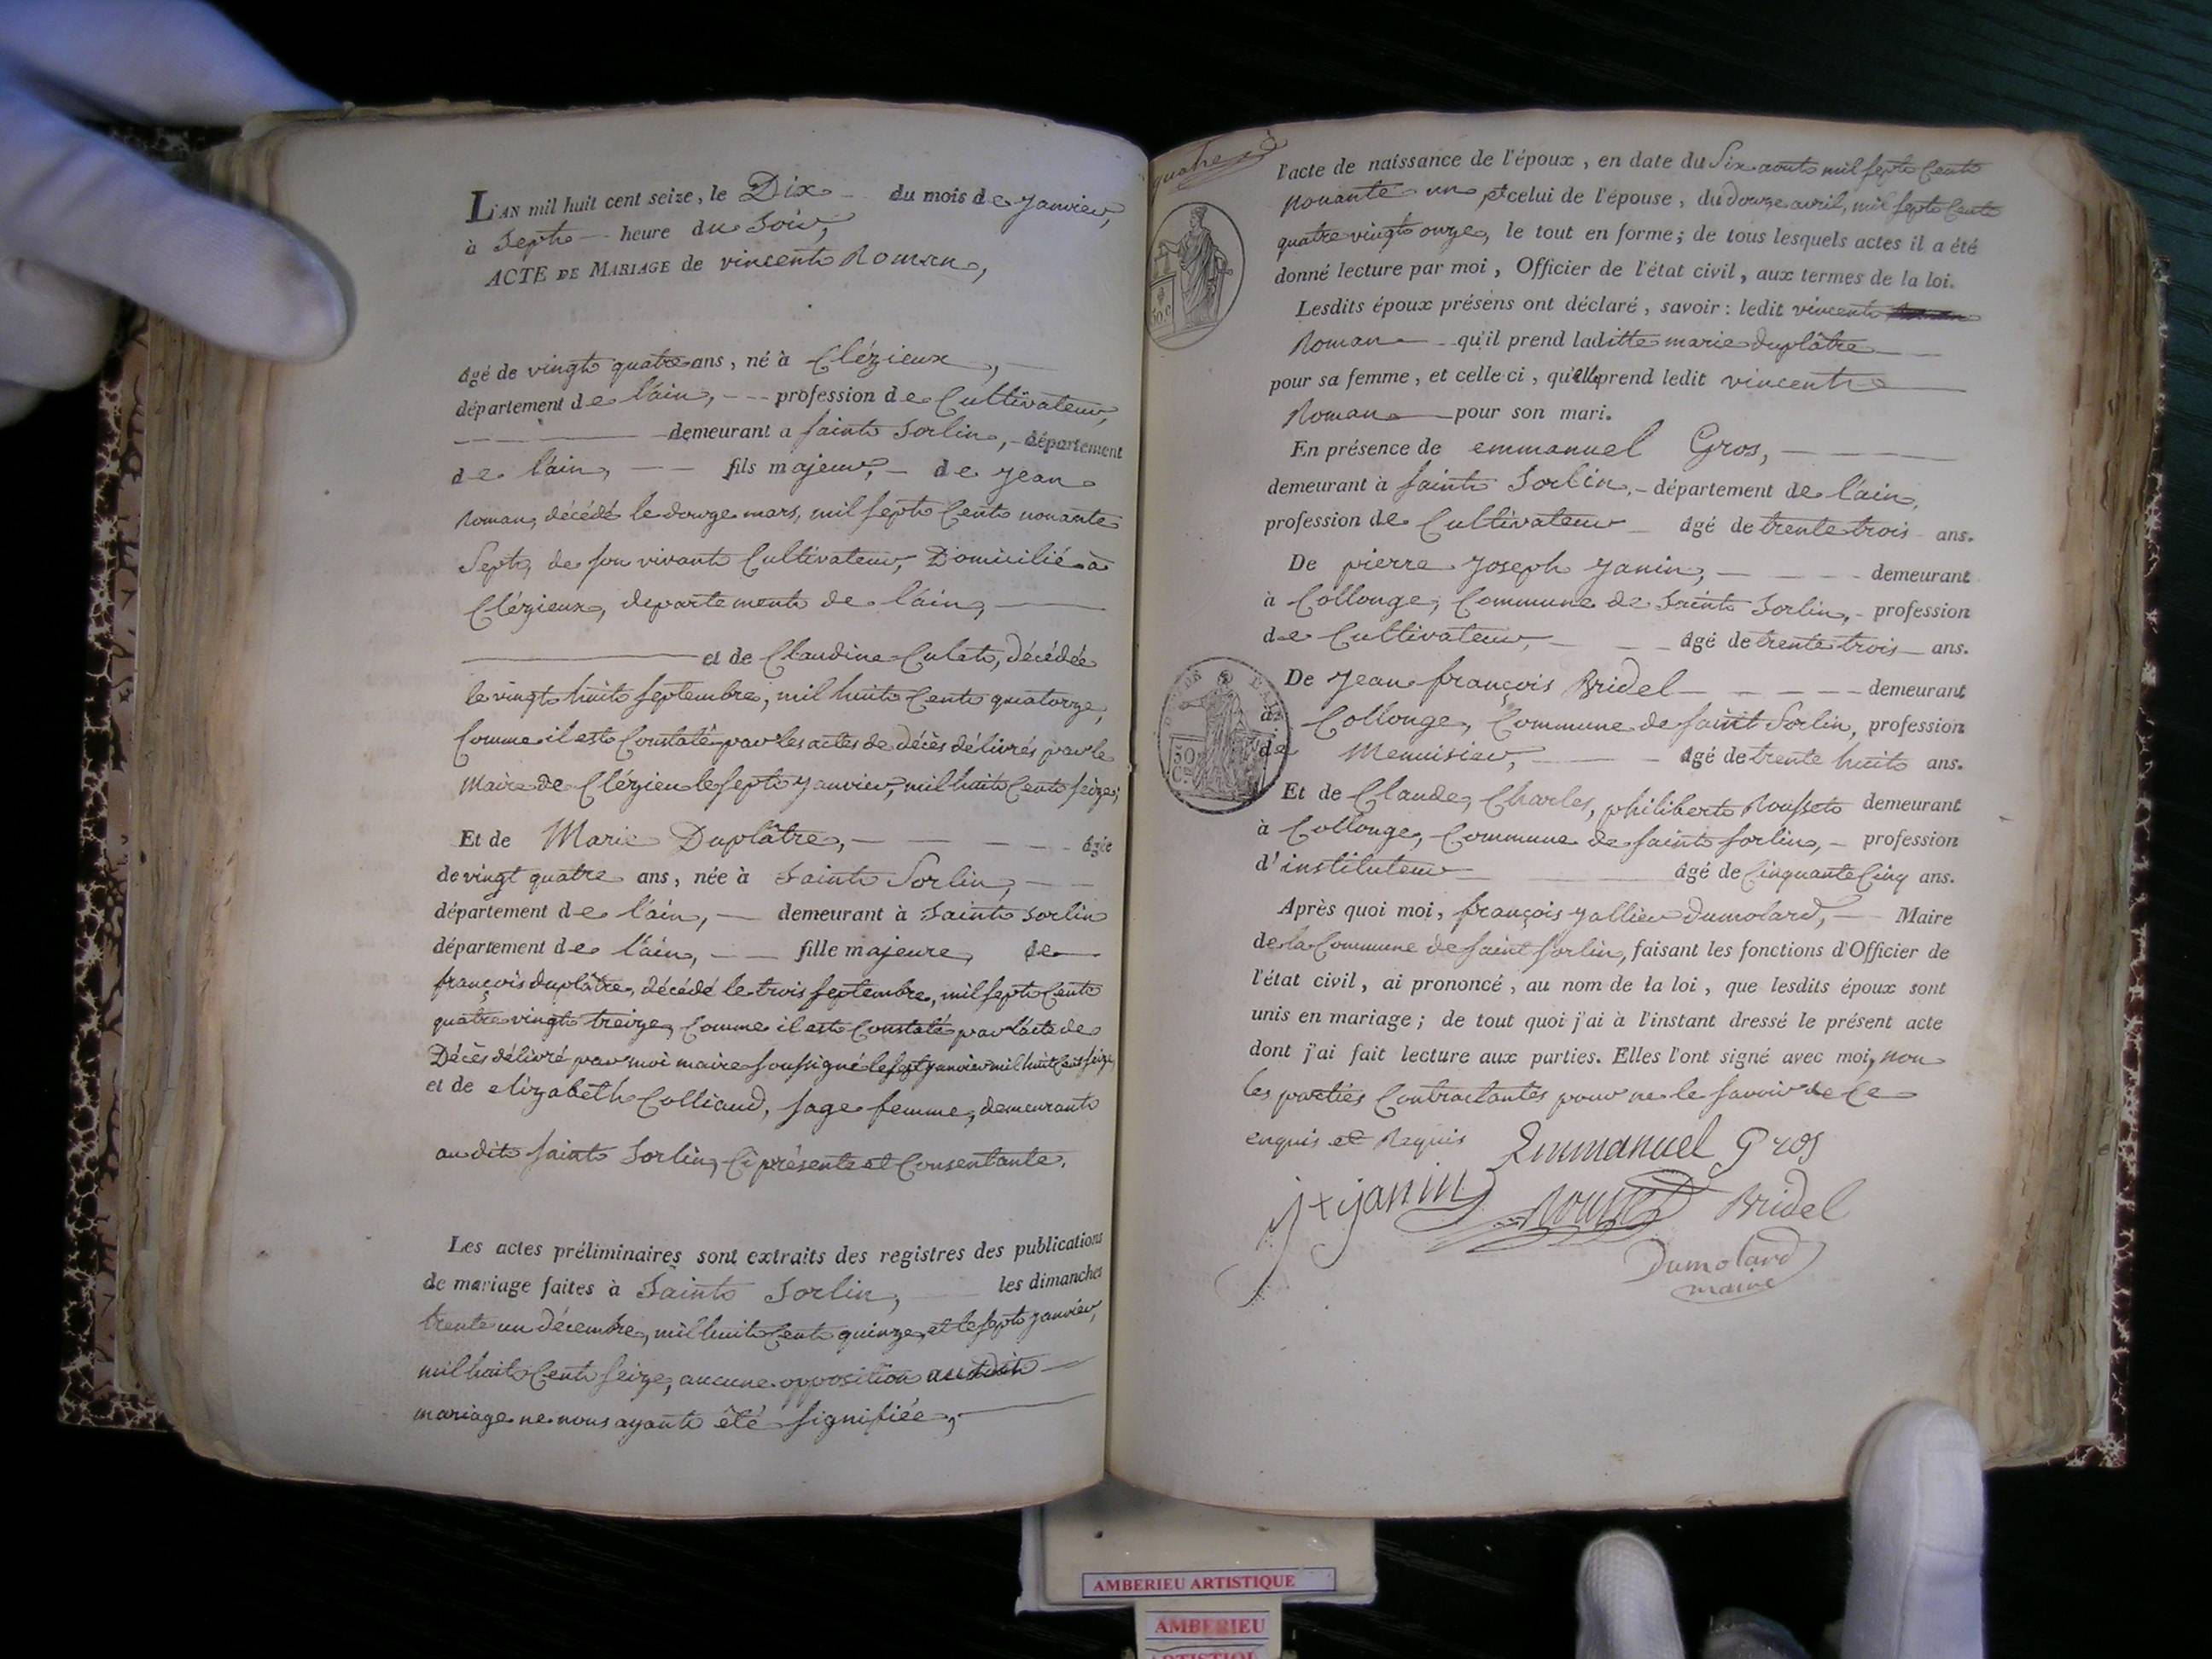 L'AN mil huit cent seize, le Dix du mois de janvier,
à Sept heure du Soir,
ACTE DE MARIAGE de vincent Roman,
âgé de vingt quatre ans, né à Clézieux,
département de l'ain, profession de Cultivateur,
demeurant a saint Sorlin, département
de l'ain, fils majeur, de jean
Roman, décédé le douze mars, mil sept Cent nonante
Sept, de son vivant Cultivateur, Domicilié à
Clézieux, departement de l'ain,
et de Claudine Culet, décédée
le vingt huit septembre, mil huit Cent quatorze,
Comme il est Constaté par les actes de décès délivrés par le
Maire de Clézieu le sept janvier, mil huit Cent seize;
Et de Marie Duplâtre, âgée
de vingt quatre ans, née à Saint Sorlin,
département de l'ain, demeurant à Saint Sorlin
département de l'ain, fille majeure, de
françois duplâtre, décédé le trois septembre, mil sept Cent
quatre vingt treize, Comme il est Constaté par l'acte de
Décès délivré par moi maire soussigné le sept janvier mil huit Cent seize,
et de elizabeth Colliaud, sage femme, demeurant
audit saint Sorlin, Ci présente et Consentante.
Les actes préliminaires sont extraits des registres des publications
de mariage faites à Saint Sorlin, les dimanches
trente un décembre, mil huit Cent quinze, et le sept janvier,
mil huit Cent seize, aucune opposition audit
mariage ne nous ayant été signifiée,
quatre
l'acte de naissance de l'époux, en date du Six aout mil sept Cent
nonante un, et celui de l'épouse, du douze avril, mil sept Cent
quatre vingt onze, le tout en forme; de tous lesquels actes il a été
donné lecture par moi, Officier de l'état civil, aux termes de la loi.
Lesdits époux présens ont déclaré, savoir: ledit vincent
Roman qu'il prend laditte marie duplâtre
pour sa femme, et celle-ci, qu'elle prend ledit vincent
Roman pour son mari.
En présence de emmanuel Gros,
demeurant à saint Sorlin, département de l'ain,
profession de Cultivateur âgé de trente trois ans.
De pierre joseph janin, demeurant
à Collonge, Commune de Saint Sorlin, profession
de Cultivateur, âgé de trente trois ans.
De jean françois Bridel demeurant
à Collonge, Commune de saint Sorlin, profession
de Menuisier, âgé de trente huit ans.
50 C.
Et de Claude, Charles, philibert Rousset demeurant
à Collonge, Commune de saint sorlin, profession
d'instituteur âgé de Cinquante Cinq ans.
Après quoi moi, françois jallier Dumolard, Maire
de la Commune de saint sorlin, faisant les fonctions d'Officier de
l'état civil, ai prononcé, au nom de la loi, que lesdits époux sont
unis en mariage; de tout quoi j'ai à l'instant dressé le présent acte
dont j'ai fait lecture aux parties. Elles l'ont signé avec moi, non
les parties Contractantes pour ne le savoir de Ce
enquis et Requis Emmanuel Gros
janin Rousset Bridel
Dumolard
maire
AMBERIEU ARTISTIQUE
AMBERIEU
ARTISTIQUE